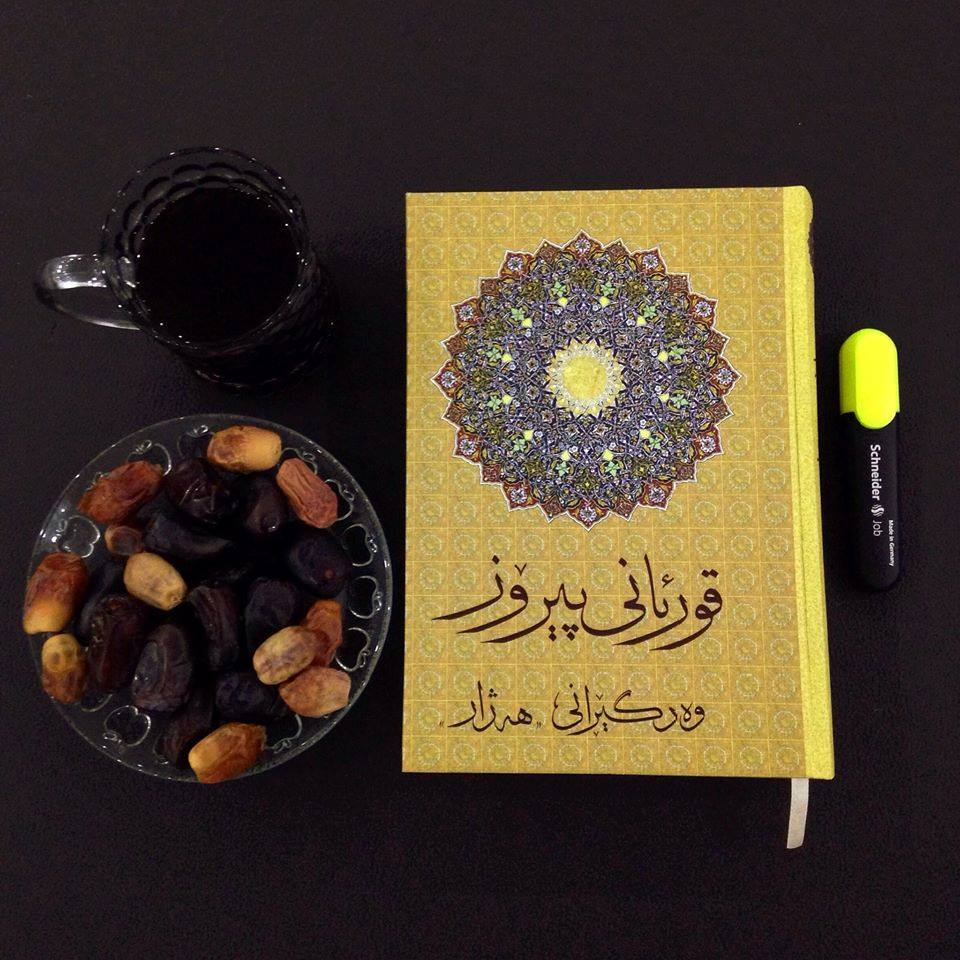 قورئانی پیرۆز
وەرگێڕانی „هەژار“
Schneider Job
Made in Germany